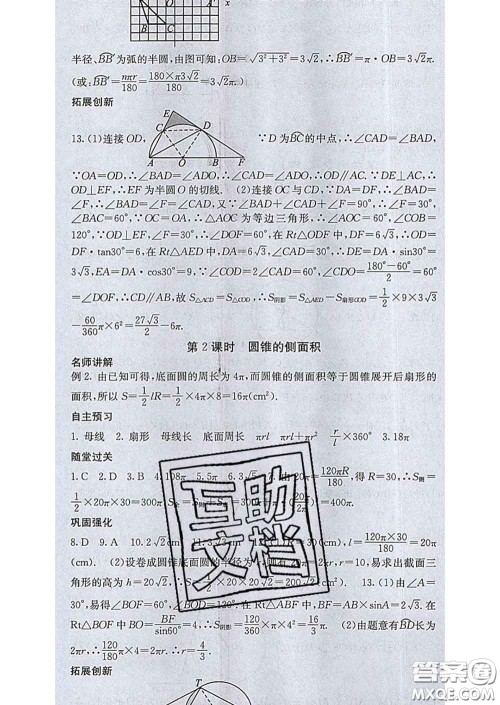 半径、BB′为弧的半圆,由图可知:OB=√3²+3²=3√2,∴BB′=π·OB=3√2π.
(或:BB′=nπr/180=180×π3√2/180=3√2π.)
拓展创新
E
C D
A O B F
13.(1)连接OD, ∵D为BC的中点,∴∠CAD=∠BAD,
∵OA=OD,∴∠BAD=∠ADO,∴∠CAD=∠ADO,∴OD∥AC.∵DE⊥AC,∴
OD⊥EF,∴EF为半圆O的切线. (2)连接OC与CD,∵DA=DF,∴∠BAD=
∠F,∴∠BAD=∠F=∠CAD,又∵∠BAD+∠CAD+∠F=90°,∴∠F=30°,
∠BAC=60°,∵OC=OA,∴△AOC为等边三角形,∴∠AOC=60°,∠COB=
120°,∵OD⊥EF,∠F=30°,∴∠DOF=60°,在Rt△ODF中,DF=6√3,∴OD=
DF·tan30°=6,在Rt△AED中,DA=6√3,∠CAD=30°,∴DE=DA·sin30°=
3√3,EA=DA·cos30°=9,∵∠COD=2∠CAD=60°,∠CDO=180°-60°/2=60°
=∠DOF,∴CD∥AB,故S△ACD=S△COD,∴S阴影=S△AED-S扇形COD=1/2×9×3√3
-60/360π×6²=27√3/2-6π.
第2课时 圆锥的侧面积
名师讲解
例2. 由已知可得,底面圆的周长为4π,而圆锥的侧面积等于圆锥展开后扇形的
面积,所以S=1/2lR=1/2×4π×8=16π(cm²).
自主预习
1. 母线 2. 扇形 母线长 底面周长 πrl πrl+πr² r/l×360° 3. 18π
随堂过关
1. C 2. D 3. B 4. 108π 5. 5π 6. 3√2 =120πR/180,得R=30,∴S侧=
1/2×20π×30=300π =400π(cm²).
巩固强化
8. D 9. A 10. 2√2 l=120π×30/180=20π
(cm). (2)设卷成圆锥底面圆的半径为r,则有20π=2πr,r=10,易求出截面三
角形的高为h=20√2, =1/2×20×20√2=200√2(cm²). 13.(1)由∠A=
30°,易得∠BOF=60°,∠BOD=120°,在Rt△ABF中,BF=AB×sinA=2√3.在
Rt△BOF中BO=BF/sin60°=4,∴S阴影=120/360×π×4²=16/3π. (2)由题意有BD长为
2πr,∴120/180π×4=2πr,∴r=4/3.
拓展创新
T
互助
文档
答案圈
MXQE.COM